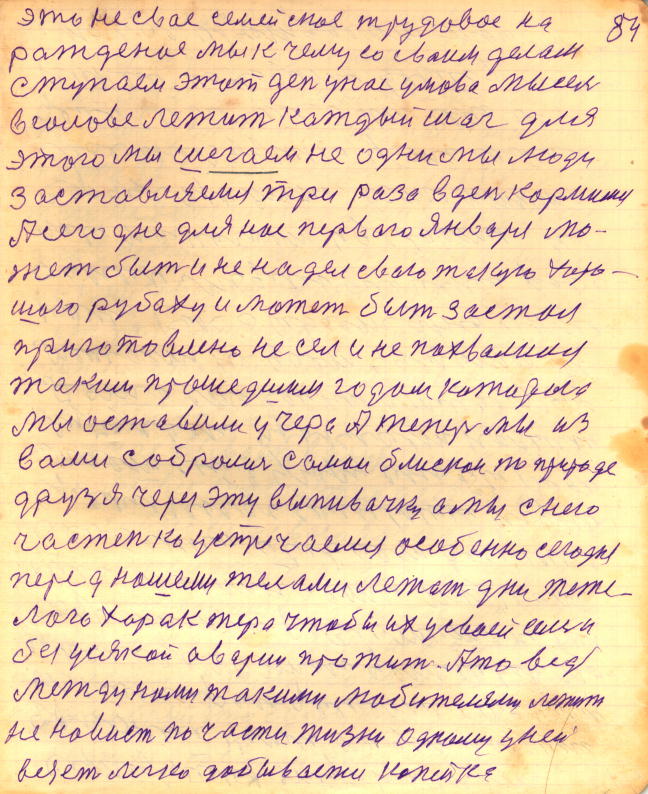 это не свае семейское трудовое на 84
рожденое мы к чему со своим делам
ступаем этот ден у нас умова мысех
в голове лежит каждый шаг для
этого мы шегаем не одни мы люди
заставляемся три раза в ден кормит
А сегодне для нас первого Января мо-
жет быт и не надел свого такую хоро-
шого рубаху и может быт за стол
приготовлено не сел и не похвалился
таким прошедшим годом котораго
мы оставили учера А тепер мы из
вами собролис самои блискои по природе
друзя через эту выпивачку а мы с него
частенко устричаемся особенно сегодня
перед ношеми телами лежат дни теже-
лого характера чтобы их у своей семи
без усякой аварии прожит. А то ведь
между нами такими любителями лежит
не новист по части жизни одному у ней
везет легко добываети копейка